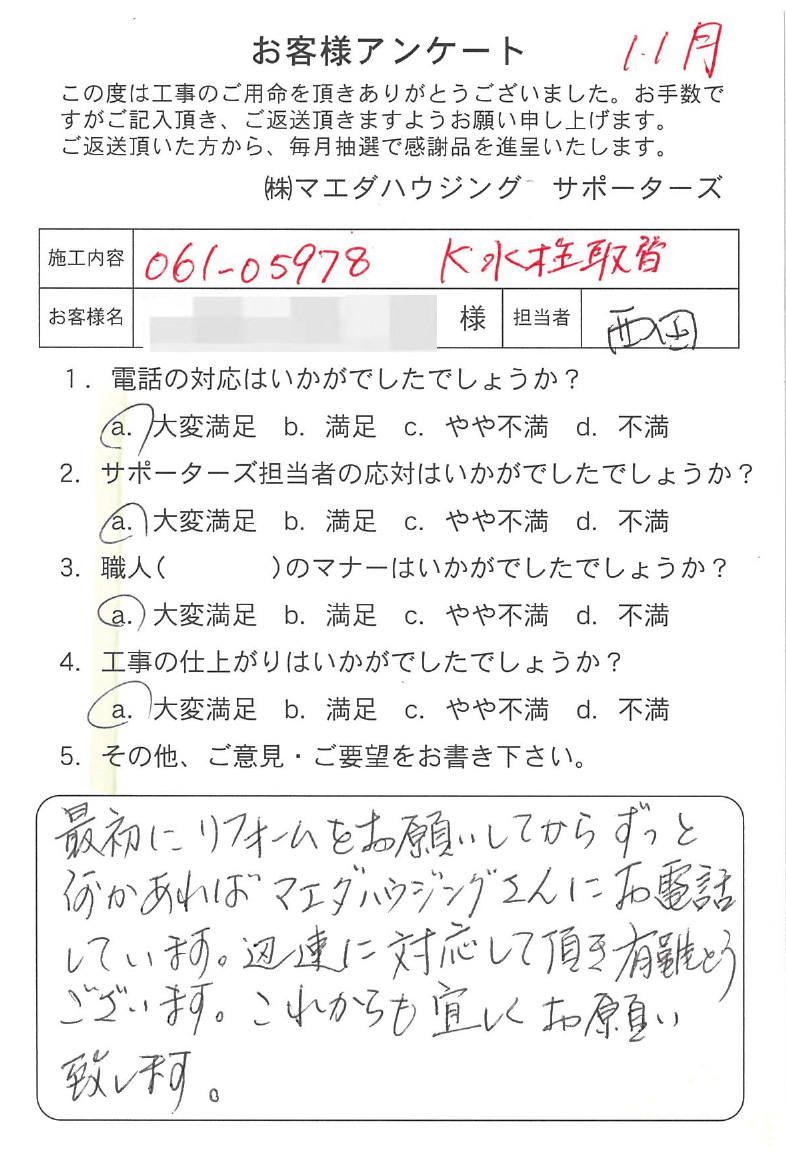 お客様アンケート
11月
この度は工事のご用命を頂きありがとうございました。お手数で
すがご記入頂き、ご返送頂きますようお願い申し上げます。
ご返送頂いた方から、毎月抽選で感謝品を進呈いたします。
㈱マエダハウジング　サポーターズ
施工内容 061-05978 K水栓取替
お客様名 様 担当者 西田
1．電話の対応はいかがでしたでしょうか？
a．大変満足 b．満足 c．やや不満 d．不満
2．サポーターズ担当者の応対はいかがでしたでしょうか？
a．大変満足 b．満足 c．やや不満 d．不満
3．職人(　　　　)のマナーはいかがでしたでしょうか？
a．大変満足 b．満足 c．やや不満 d．不満
4．工事の仕上がりはいかがでしたでしょうか？
a．大変満足 b．満足 c．やや不満 d．不満
5．その他、ご意見・ご要望をお書き下さい。
最初にリフォームをお願いしてからずっと
何かあればマエダハウジングさんにお電話
しています。迅速に対応して頂き有難とう
ございます。これからも宜しくお願い
致します。